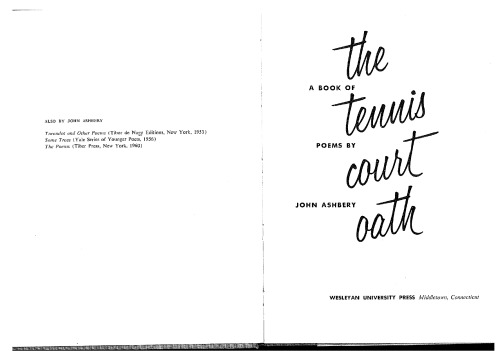 ALSO BY JOHN ASHBERY
Turandot and Other Poems (Tibor de Nagy Editions, New York, 1953)
Some Trees (Yale Series of Younger Poets, 1956)
The Poems (Tiber Press, New York, 1960)
the
A BOOK OF
tennis
POEMS BY
court
JOHN ASHBERY
oath
WESLEYAN UNIVERSITY PRESS Middletown, Connecticut